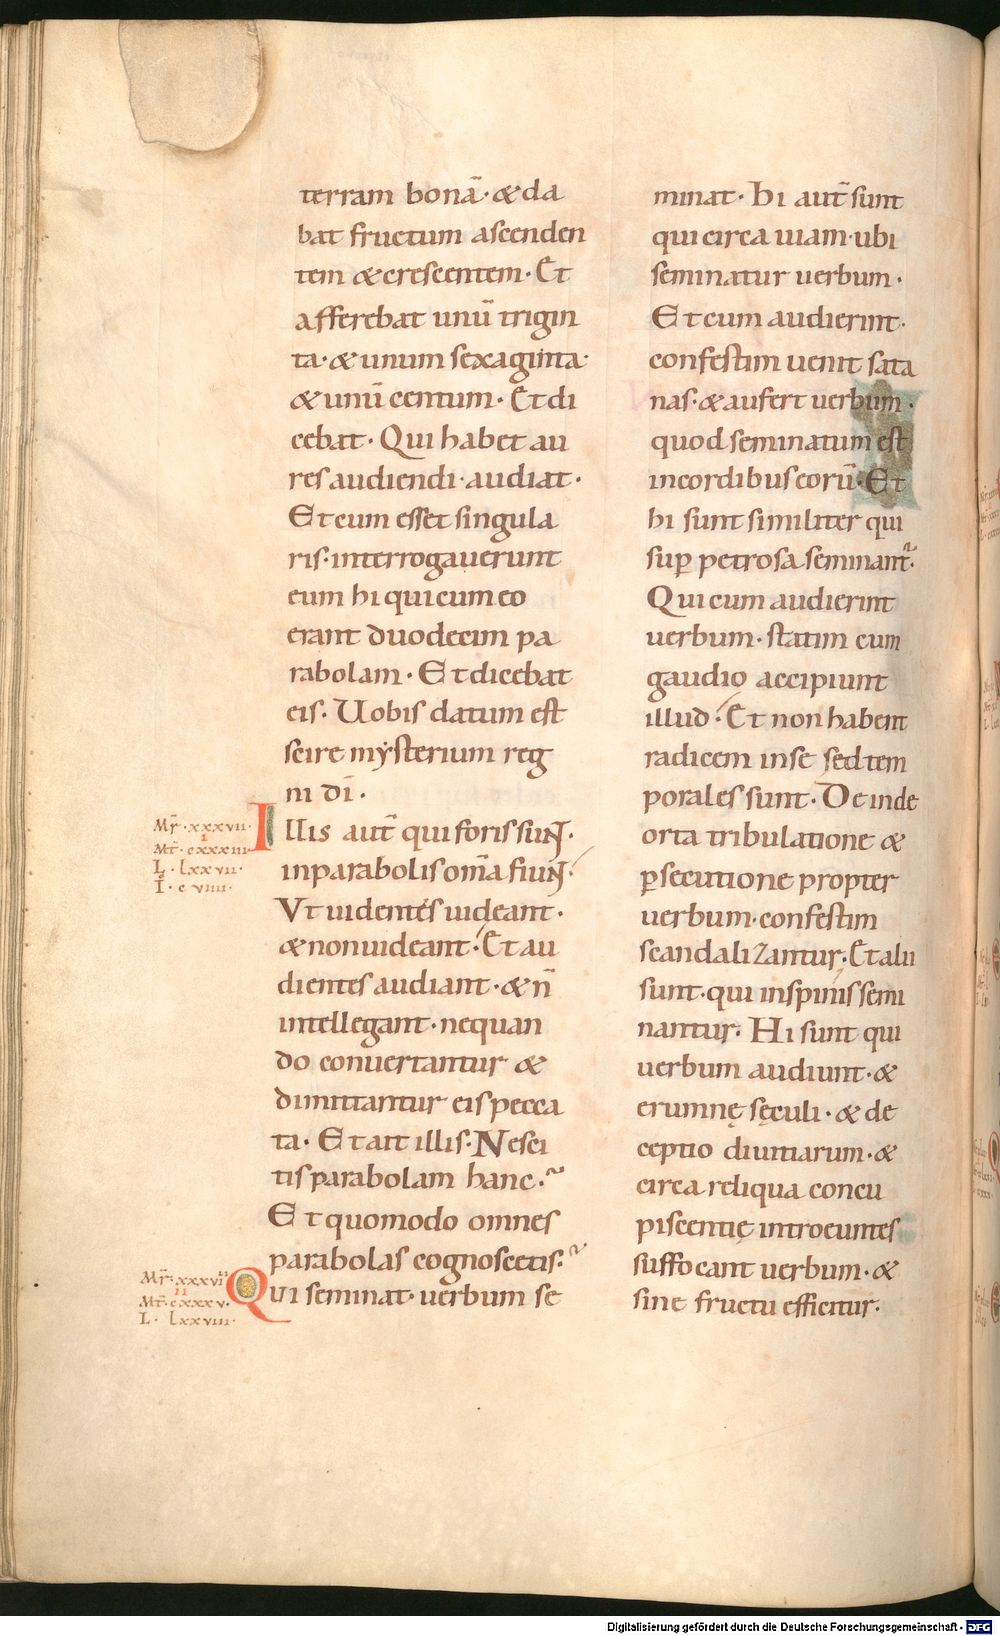 terram bonā· & da
bat fructum ascenden
tem & crescentem· Et
afferebat unū trigin
ta· & unum sexaginta·
& unū centum· Et di
cebat· Qui habet au
res audiendi· audiat·
Et cum esset singula
ris· interrogauerunt
eum hi qui cum eo
erant duodecim pa
rabolam· Et dicebat
eis· Uobis datum est
scire mysterium reg
ni dī·
Mr̄· xxxvii·
i
Mt̄· cxxxiii·
L· lxxvii·
Ī· c viiii·
Illis aut̄ qui foris sunt·
in parabolis om̄a fiunt·
Vt uidentes uideant·
& non uideant· Et au
dientes audiant· & n̄
intellegant· nequan
do conuertantur &
dimittantur eis pecca
ta· Et ait illis· Nesci
tis parabolam hanc·
Et quomodo omnes
parabolas cognoscetis·
Mr̄· xxxviii
ii
Mt̄· cxxxv·
L· lxxviii·
Qui seminat· uerbum se
minat· Hi aut̄ sunt
qui circa uiam· ubi
seminatur uerbum·
Et cum audierint·
confestim uenit sata
nas· & aufert uerbum·
quod seminatum est
in cordibus eorū· Et
hi sunt similiter qui
sup̄ petrosa seminant·
Qui cum audierint
uerbum· statim cum
gaudio accipiunt
illud· Et non habent
radicem in se sed tem
porales sunt· Deinde
orta tribulatione &
p̄secutione propter
uerbum· confestim
scandalizantur· Et alii
sunt· qui in spinis semi
nantur· Hi sunt qui
uerbum audiunt· &
erumnę sęculi· & de
ceptio diuitiarum· &
circa reliqua concu
piscentię introeuntes
suffocant uerbum· &
sine fructu efficitur·
Digitalisierung gefördert durch die Deutsche Forschungsgemeinschaft - DFG